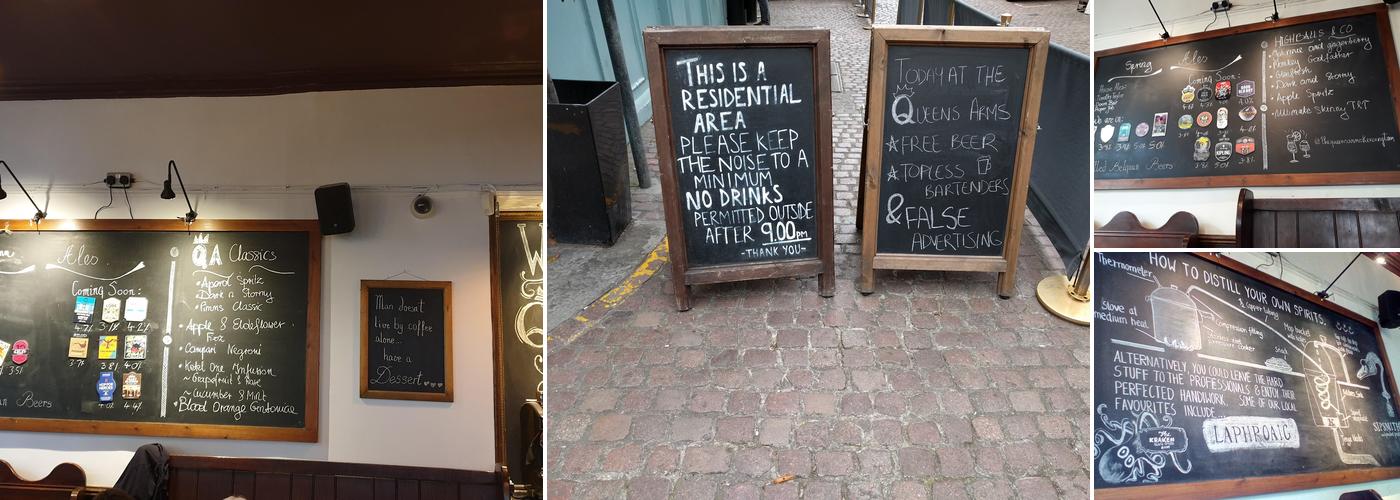 Ales
Coming Soon:
4.7% 3.9% 4.2%
3.7% 3.8% 4.0%
3.5%
4.0% 4.4%
Beers
QA Classics
Aperol Spritz
Dark n Stormy
Pimms Classic
Apple & Elderflower
Fizz
Campari Negroni
Ketel One Infusion
~Grapefruit & Rose
~Cucumber & Mint
Blood Orange
Man doesn't
live by coffee
alone...
have a
Dessert
THIS IS A
RESIDENTIAL
AREA
PLEASE KEEP
THE NOISE TO A
MINIMUM
NO DRINKS
PERMITTED OUTSIDE
AFTER 9.00pm
-THANK YOU-
TODAY AT THE
QUEENS ARMS
FREE BEER
TOPLESS
BARTENDERS
& FALSE
ADVERTISING
Spring Ales
Coming Soon:
Belgian Beers
HIGHBALLS & CO
Monkey Godfather
Dark and Stormy
Apple Spritz
Ultimate Skinny T&T
Thermometer
HOW TO DISTILL YOUR OWN SPIRITS:
& Copper tubing
Stove at
medium heat
Compression fitting
Stainless steel
pressure cooker
Mop bucket
ALTERNATIVELY, YOU COULD LEAVE THE HARD
STUFF TO THE PROFESSIONALS & ENJOY THEIR
PERFECTED HANDIWORK. SOME OF OUR LOCAL
FAVOURITES INCLUDE...
The
KRAKEN
LAPHROAIG